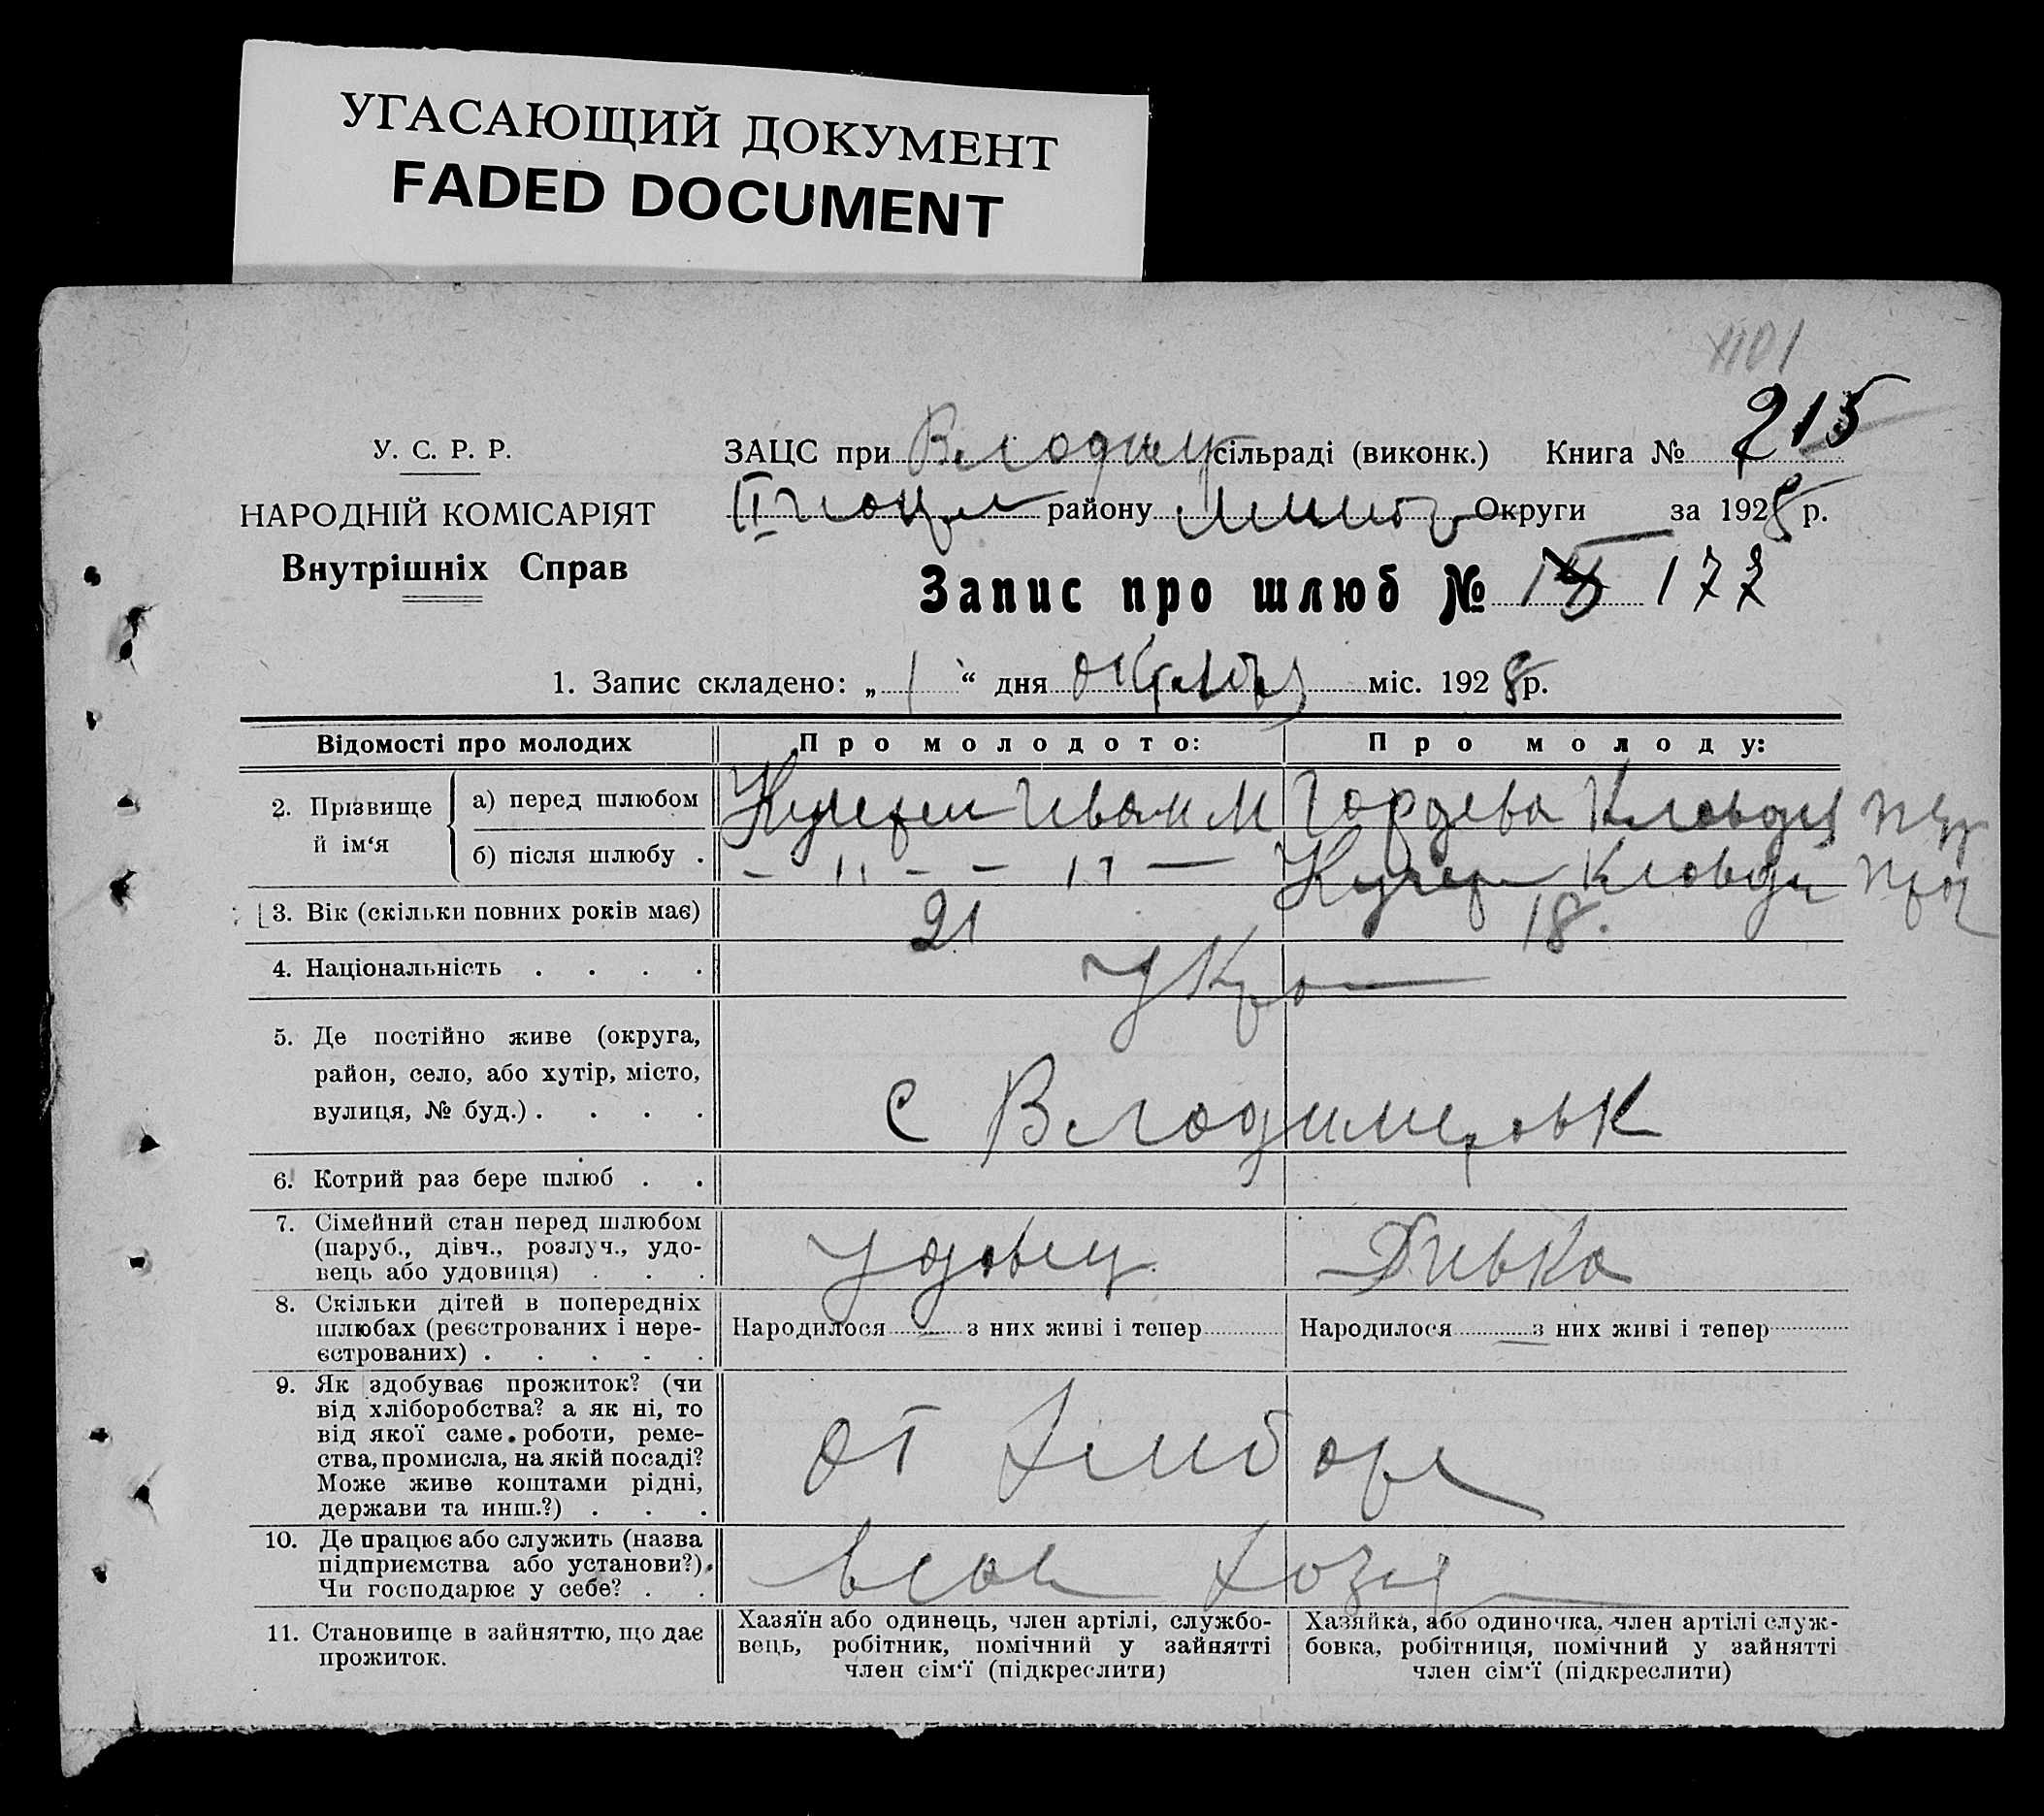 УГАСАЮЩИЙ ДОКУМЕНТ
FADED DOCUMENT
1101
У. С. Р. Р.
НАРОДНІЙ КОМІСАРІЯТ
Внутрішніх Справ
ЗАЦС при сільраді (виконк.) Книга № 215
району Округи за 1928 р.
Запис про шлюб № 177
1. Запис складено: „ 1 “ дня октября міс. 1928 р.
Відомості про молодих
Про молодого:
Про молоду:
2. Прізвище й ім‘я
а) перед шлюбом
Иван М
Гордева Клавдия
б) після шлюбу .
— " — — " —
Кучер Клавди
3. Вік (скільки повних років має)
21
18.
4. Національність . . . .
Укра
5. Де постійно живе (округа,
район, село, або хутір, місто,
вулиця, № буд.) . . . .
с Влодимеровк
6. Котрий раз бере шлюб . .
7. Сімейний стан перед шлюбом
(паруб., дівч., розлуч., удо-
вець або удовиця) . . .
удовец
Дивка
8. Скільки дітей в попередніх
шлюбах (реєстрованих і нере-
єстрованих) . . . . .
Народилося — з них живі і тепер
Народилося — з них живі і тепер
9. Як здобуває прожиток? (чи
від хліборобства? а як ні, то
від якої саме роботи, реме-
ства, промисла, на якій посаді?
Може живе коштами рідні,
держави та инш.?) . . .
от
10. Де працює або служить (назва
підприємства або установи?).
Чи господарює у себе? . .
хозя
11. Становище в зайняттю, що дає
прожиток.
Хазяїн або одинець, член артілі, службо-
вець, робітник, помічний у зайнятті
член сім‘ї (підкреслити)
Хазяйка, або одиночка, член артілі служ-
бовка, робітниця, помічний у зайнятті
член сім‘ї (підкреслити)